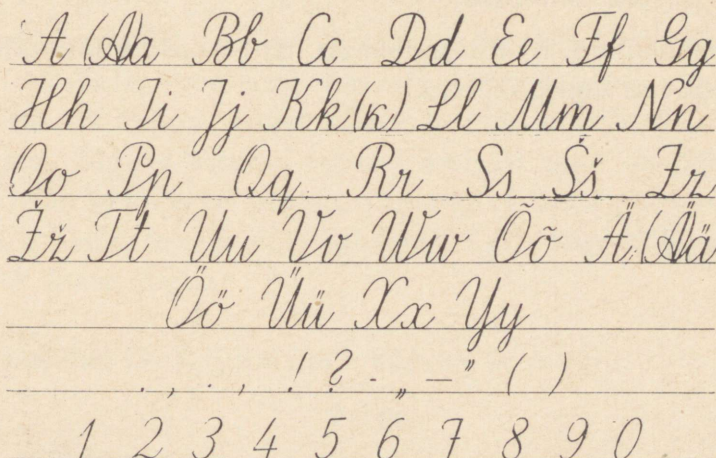 A (A)a Bb Cc Dd Ee Ff Gg
Hh Ii Jj Kk(к) Ll Mm Nn
Oo Pp Qq Rr Ss Šš Zz
Žž Tt Uu Vv Ww Õõ Ä(Ä)ä
Öö Üü Xx Yy
. , . , ! ? - „ — " ( )
1 2 3 4 5 6 7 8 9 0